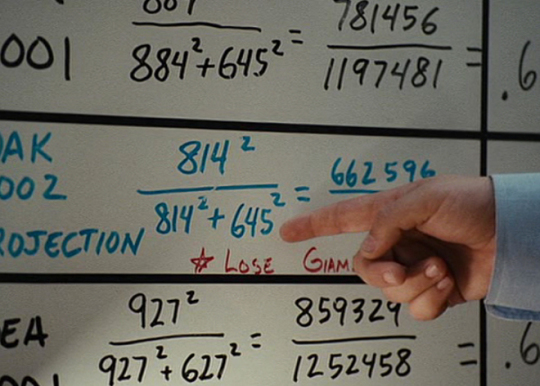 001
884²+645² = 781456
1197481 = .6
AK
002
814²
814²+645² = 662596
ROJECTION
* LOSE GIAM
EA
927²
927²+627² = 859329
1252458 = .6